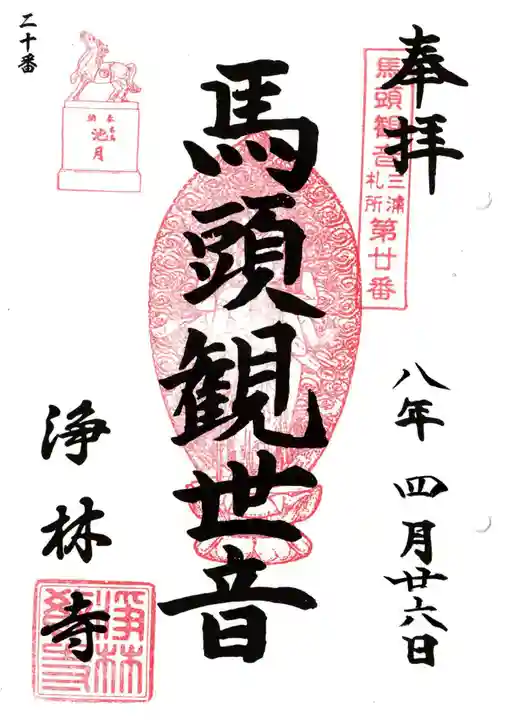 奉拝
馬頭観音
三浦
札所
第廿番
八年 四月廿六日
馬頭観世音
奉
納
名馬
池月
二十番
浄林寺
浄林
寺